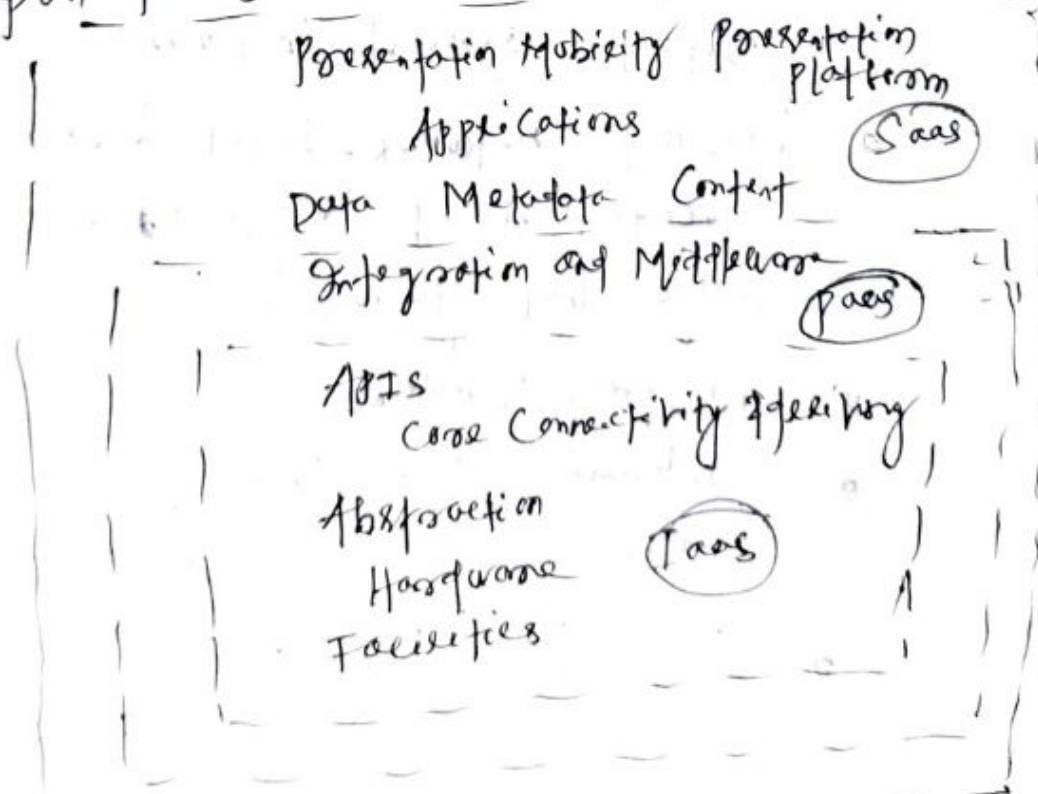 Presentation Mobility Presentation
Platform
Applications
Saas
Data Metadata Content
Integration and Middleware
Paas
APIS
Core Connectivity & delivery
Abstraction
Iaas
Hardware
Facilities